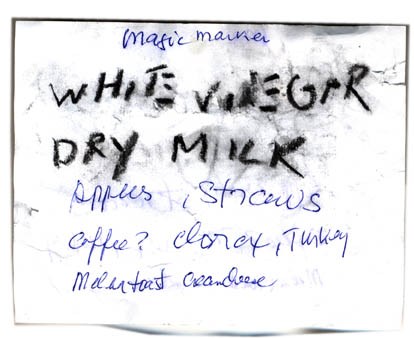 Magic marker
WHITE VINEGAR
DRY MILK
Apples, Straws
Coffee? Clorox, Turkey
Melba toast Creamcheese